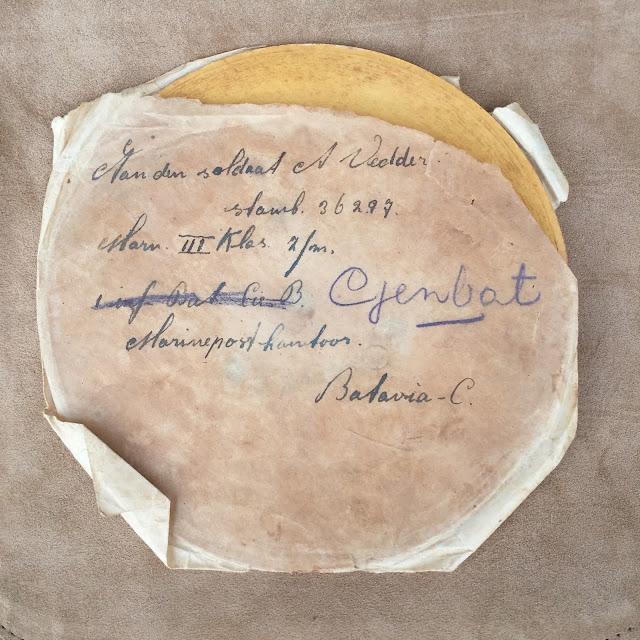 Aan den soldaat A Vedder.
stamb. 36297.
Marn. III Klas. z/m.
inf Bat Cie B. Cjenbat
Marinepostkantoor.
Batavia-C.